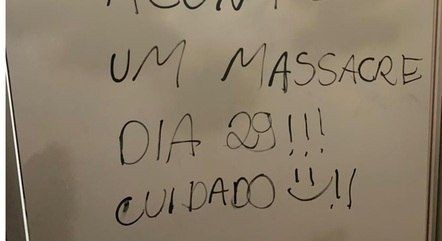 UM MASSACRE
DIA 29!!!
CUIDADO !!